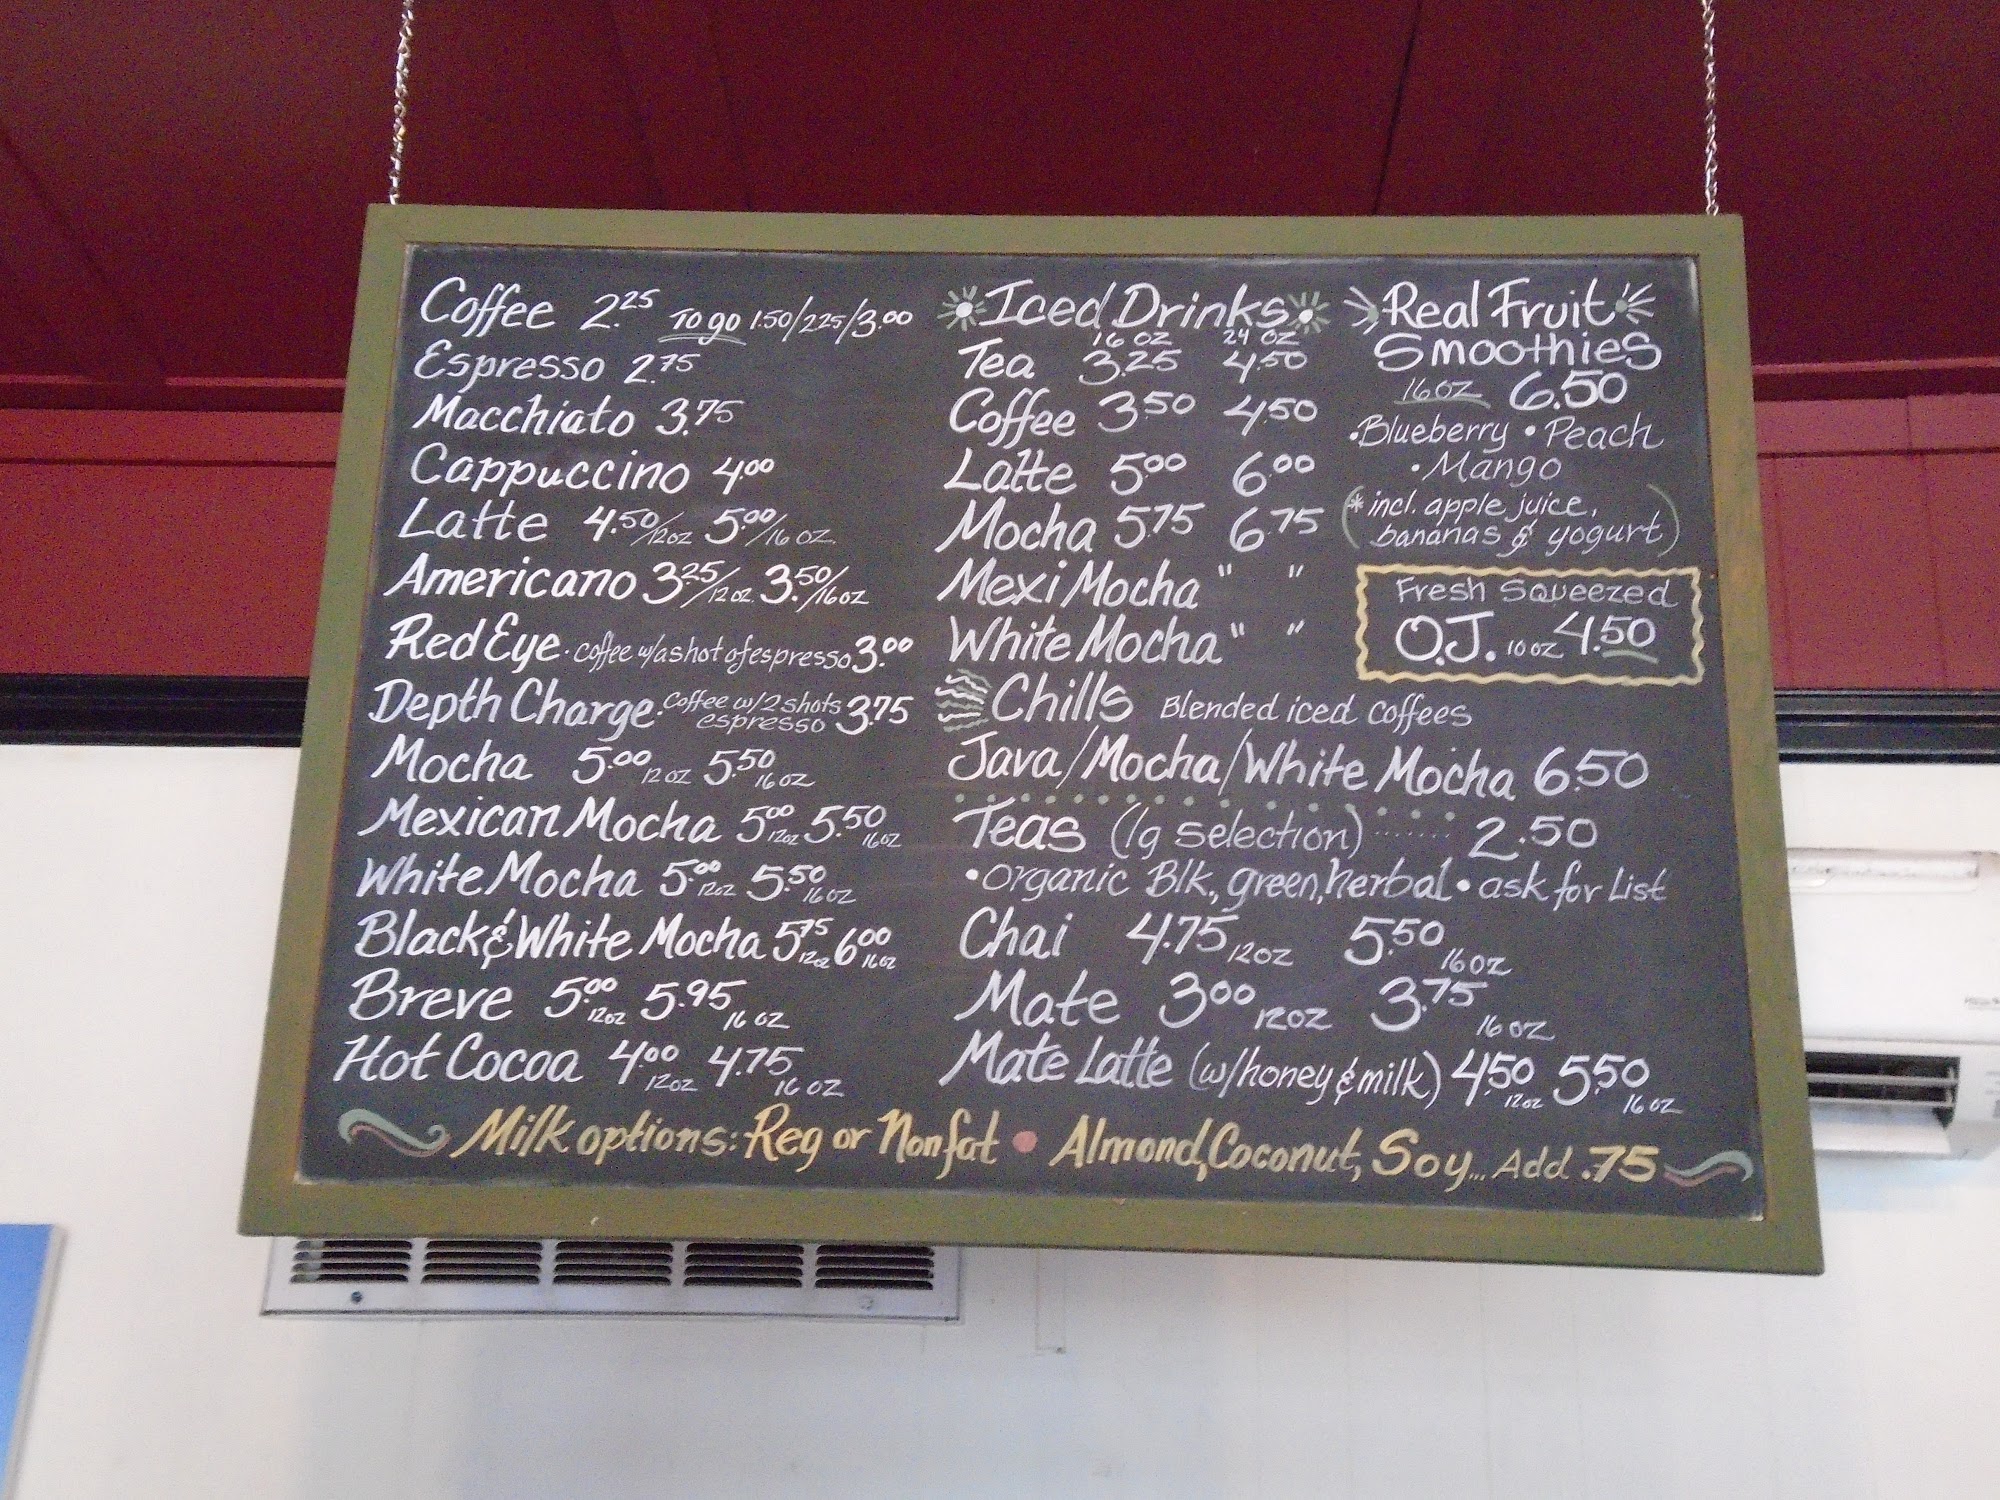 Coffee 2.25 To go 1.50/2.25/3.00
Espresso 2.75
Macchiato 3.75
Cappuccino 4.00
Latte 4.50/12oz 5.00/16 oz
Americano 3.25/12oz 3.50/16oz
Red Eye · coffee w/a shot of espresso 3.00
Depth Charge · coffee w/2 shots
espresso 3.75
Mocha 5.00 12oz 5.50 16oz
Mexican Mocha 5.00 12oz 5.50 16oz
White Mocha 5.00 12oz 5.50 16oz
Black & White Mocha 5.75 12oz 6.00 16oz
Breve 5.00 12oz 5.95 16 oz
Hot Cocoa 4.00 12oz 4.75 16 oz
Iced Drinks
16 oz 24 oz
Tea 3.25 4.50
Coffee 3.50 4.50
Latte 5.00 6.00
Mocha 5.75 6.75
Mexi Mocha " "
White Mocha " "
Real Fruit
Smoothies
16 oz 6.50
• Blueberry • Peach
• Mango
(* incl. apple juice,
bananas & yogurt)
Fresh Squeezed
O.J. 10 oz 4.50
Chills Blended iced coffees
Java/Mocha/White Mocha 6.50
Teas (lg selection) ....... 2.50
• organic Blk., green, herbal • ask for List
Chai 4.75 12oz 5.50 16oz
Mate 3.00 12oz 3.75 16 oz
Mate Latte (w/honey & milk) 4.50 12oz 5.50 16 oz
Milk options: Reg or Nonfat • Almond, Coconut, Soy... Add .75